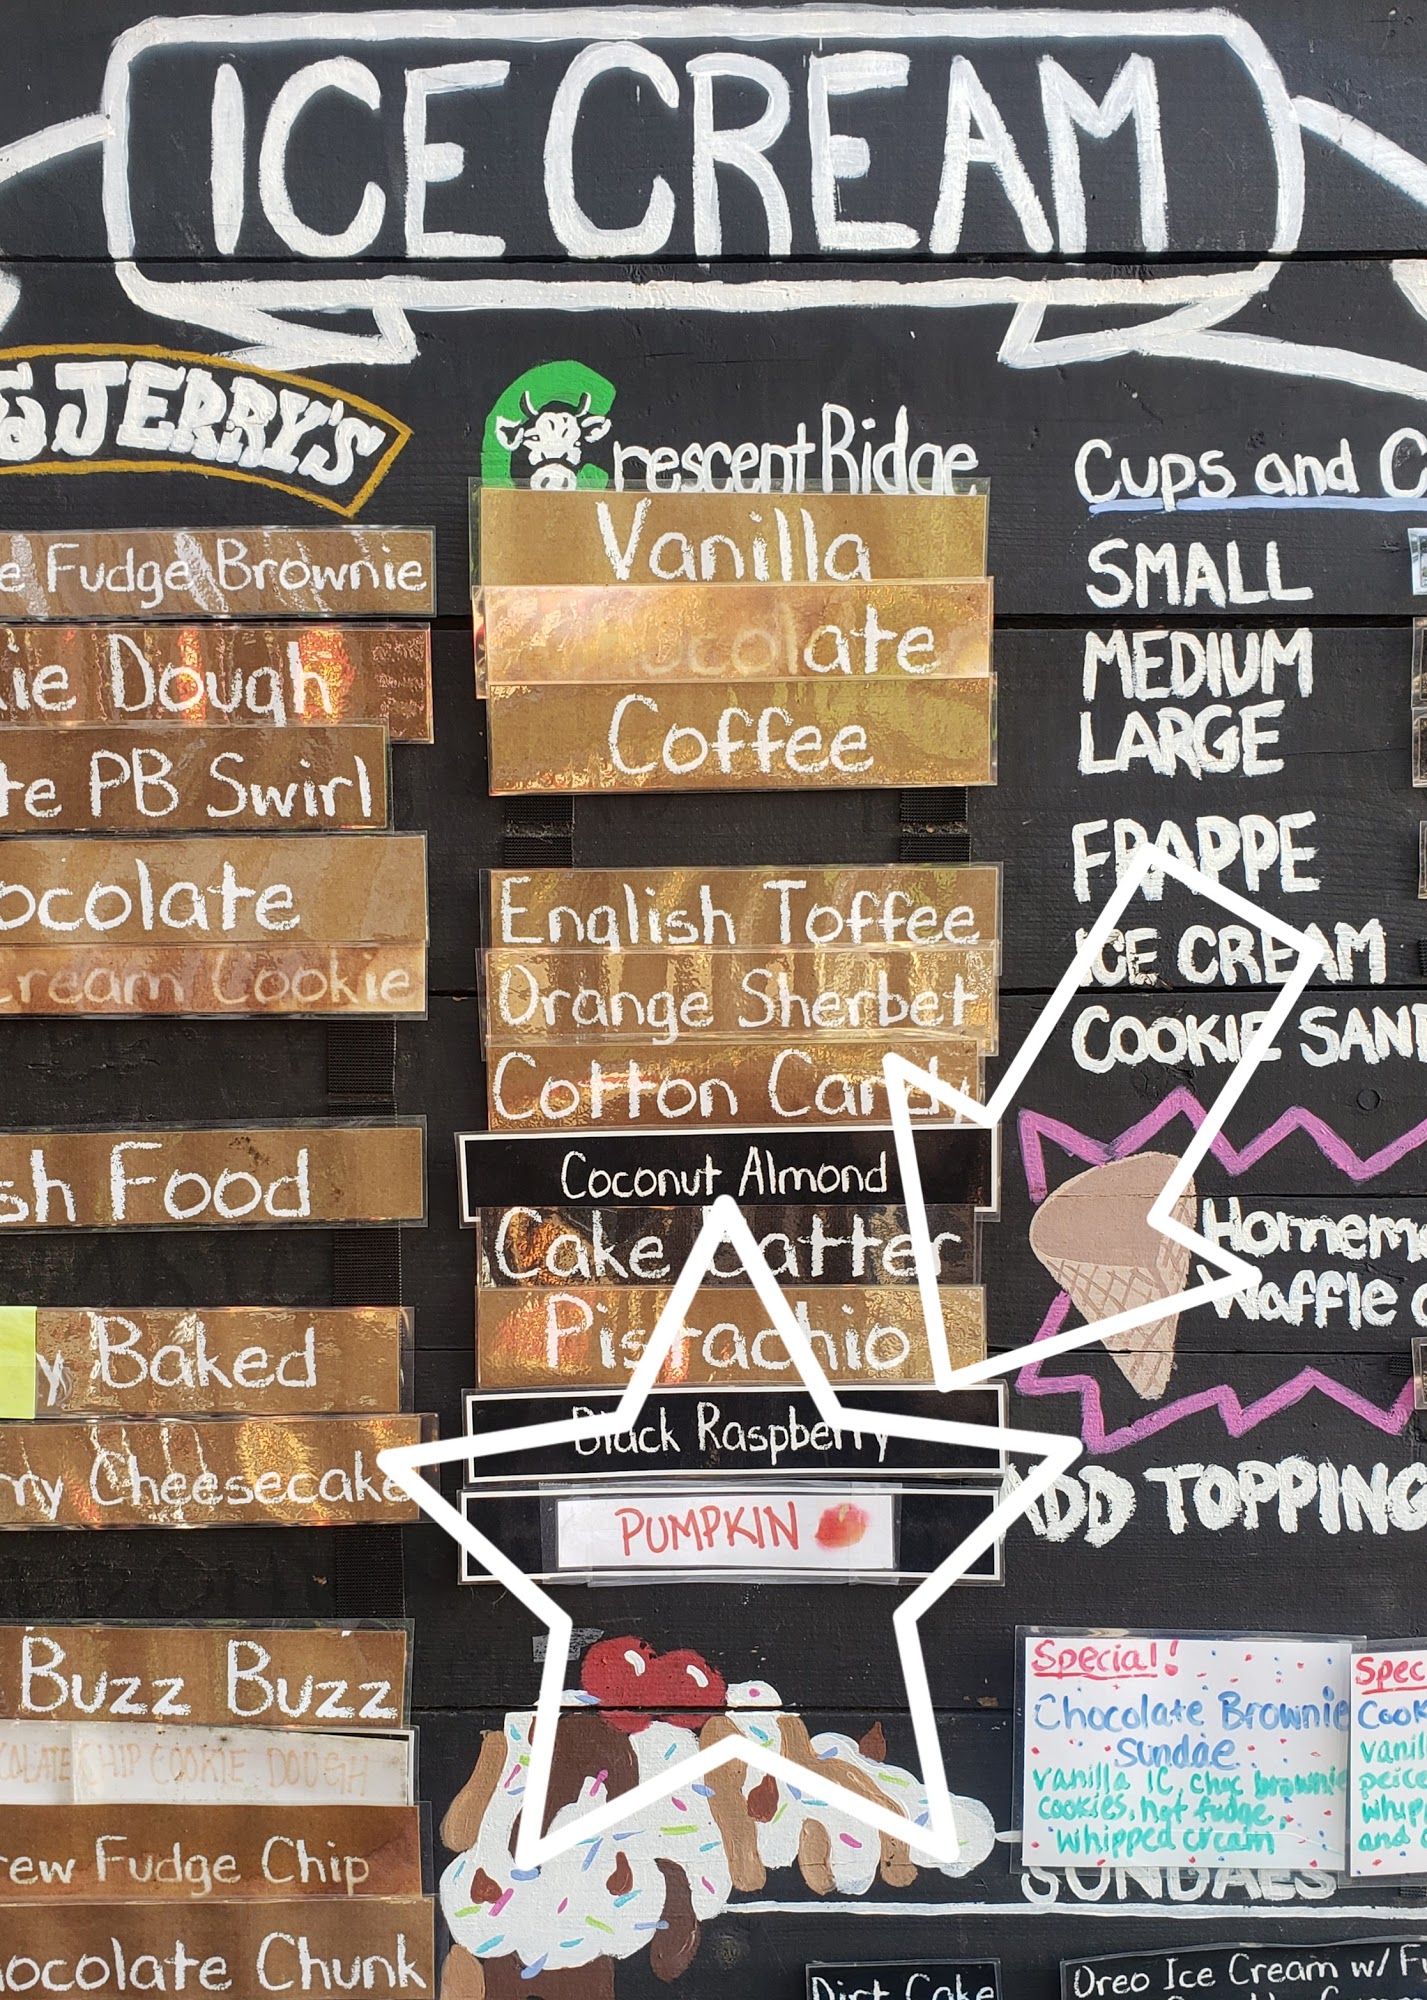 ICE CREAM
& JERRY'S
e Fudge Brownie
ie Dough
te PB Swirl
ocolate
Cream Cookie
sh Food
y Baked
rry Cheesecake
Buzz Buzz
COLATE CHIP COOKIE DOUGH
rew Fudge Chip
hocolate Chunk
Crescent Ridge
Vanilla
Chocolate
Coffee
English Toffee
Orange Sherbet
Cotton Candy
Coconut Almond
Cake Batter
Pistachio
Black Raspberry
PUMPKIN
Cups and C
SMALL
MEDIUM
LARGE
FRAPPE
ICE CREAM
COOKIE SAN
Homem
Waffle
ADD TOPPING
Special!
Chocolate Brownie
Sundae
vanilla IC, choc brownie
cookies, hot fudge,
whipped cream
Spec
Cook
vanil
peice
whip
and
SUNDAES
Dirt Cake
Oreo Ice Cream w/ F